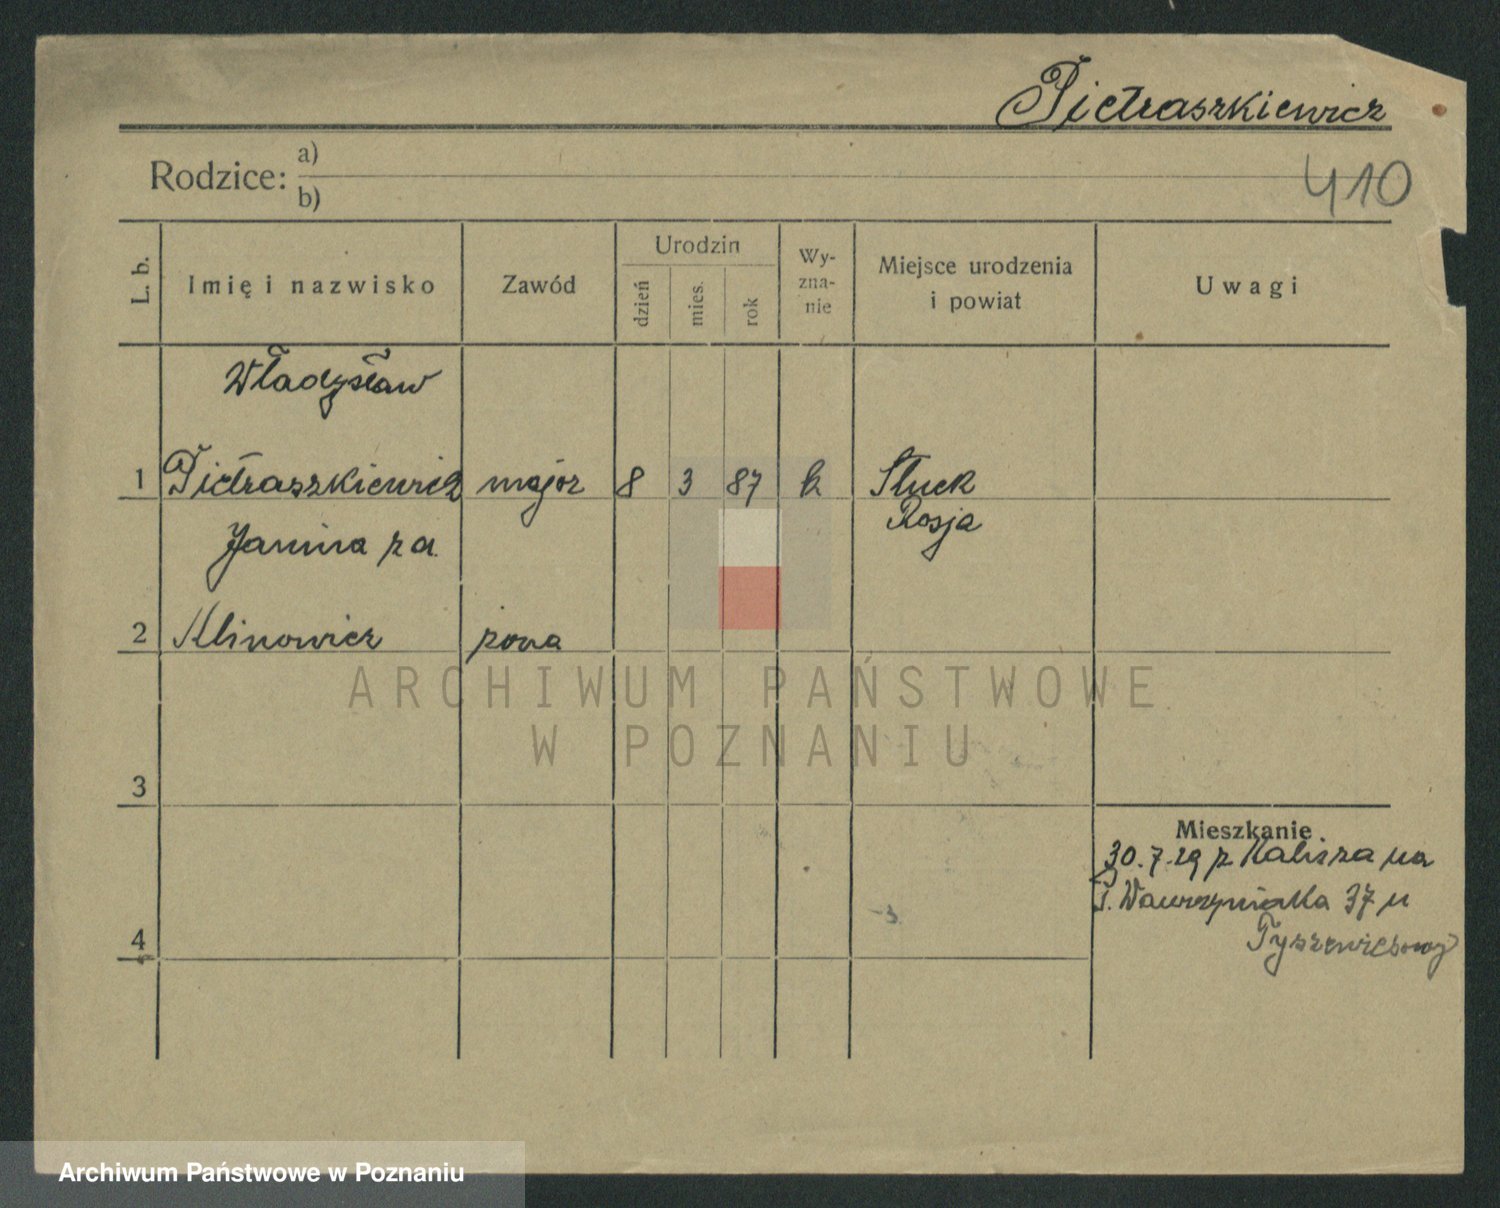 Pietraszkiewicz
Rodzice: a)
b)
410
L. b.
Imię i nazwisko
Zawód
Urodzin
dzień
mies.
rok
Wy-
zna-
nie
Miejsce urodzenia
i powiat
Uwagi
Władysław
1 Pietraszkiewicz major 8 3 87 k Słuck
Rosja
Janina za.
2 Klinowicz żona
ARCHIWUM PAŃSTWOWE
W POZNANIU
3
Mieszkanie
30.7.29 z Kalisza na
Wawrzyniaka 37 u
4
Tyszewiczowej
Archiwum Państwowe w Poznaniu